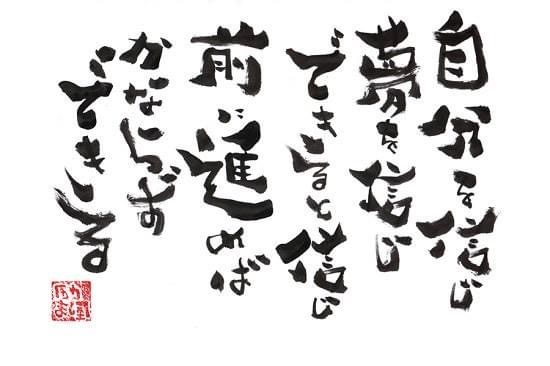 自分を信じ
夢を信じ
できると信じ
前に進めば
かならず
できる